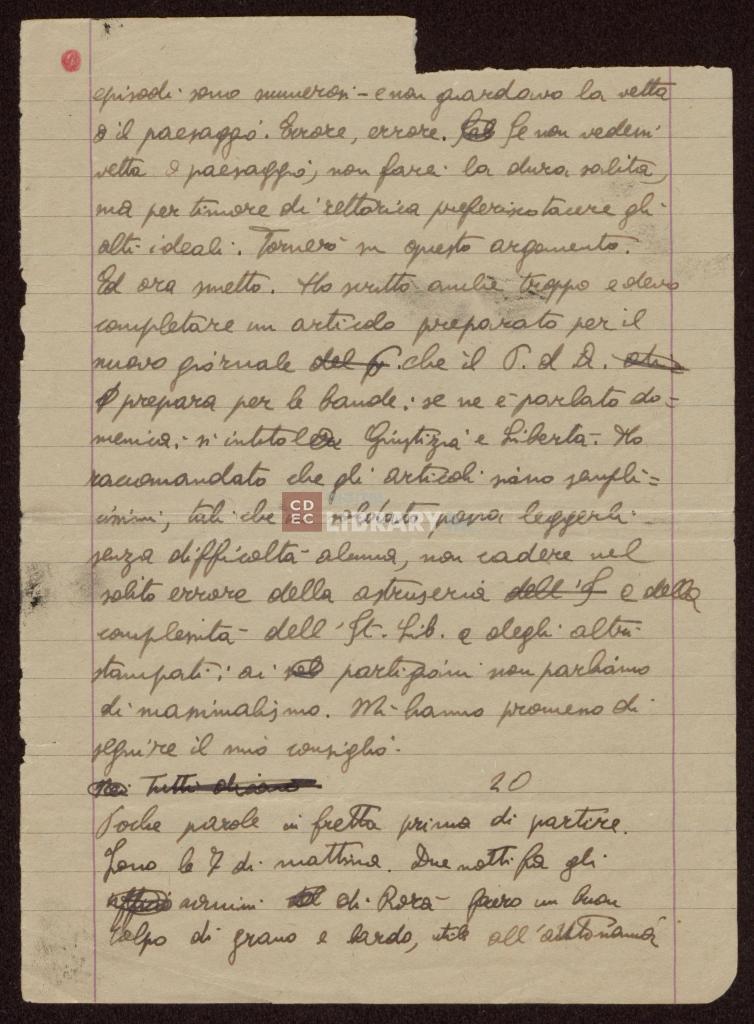 episodi sono numerosi - e non guardavo la vetta
o il paesaggio. Errore, errore. Se non vedessi
vetta o paesaggio, non farei la dura salita,
ma per timore di rettorica preferisco tacere gli
alti ideali. Tornerò su questo argomento.
Ed ora smetto. Ho scritto anche troppo e devo
completare un articolo preparato per il
nuovo giornale del P. che il P. d A.
prepara per le bande: se ne è parlato do=
menica: si intitolerà Giustizia e Libertà. Ho
raccomandato che gli articoli siano sempli=
cissimi, tali che possa leggerli
senza difficoltà alcuna, non cadere nel
solito errore della astruseria dell' e della
complessità dell'It. Lib. e degli altri
stampati: ai partigiani non parliamo
di massimalismo. Mi hanno promesso di
seguire il mio consiglio.
Tutti dicono 20
Poche parole in fretta prima di partire.
Sono le 7 di mattina. Due notti fa gli
uomini di Rorà fecero un buon
colpo di grano e lardo, utile all'autonomia
CDEC LIBRARY